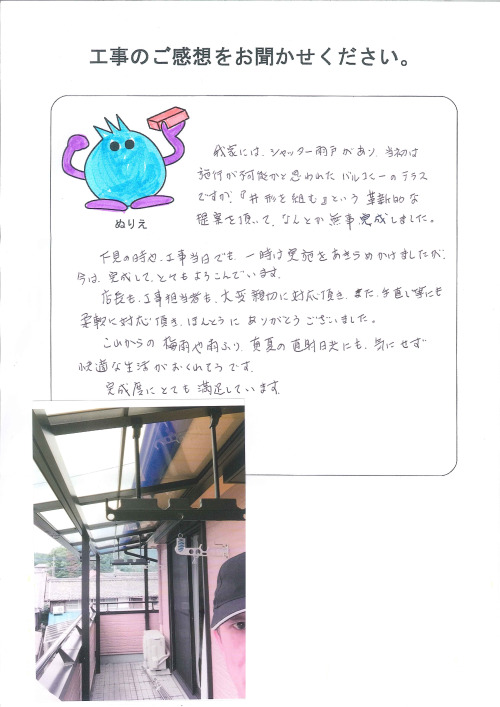 工事のご感想をお聞かせください。
ぬりえ
我家には、シャッター雨戸があり、当初は
施行が可能かと思われた バルコニーのテラス
ですが、『井形を組む』という 革新的な
提案を頂いて、なんとか無事完成しました。
下見の時や、工事当日でも、一時は実施をあきらめかけましたが、
今は、完成して、とてもよろこんでいます。
店長も、工事担当者も、大変親切に対応頂き、また、手直し等にも
柔軟に対応頂き、ほんとうに ありがとうございました。
これからの 梅雨や雨ふり、真夏の直射日光にも、気にせず
快適な生活がおくれそうです。
完成度にとても満足しています。